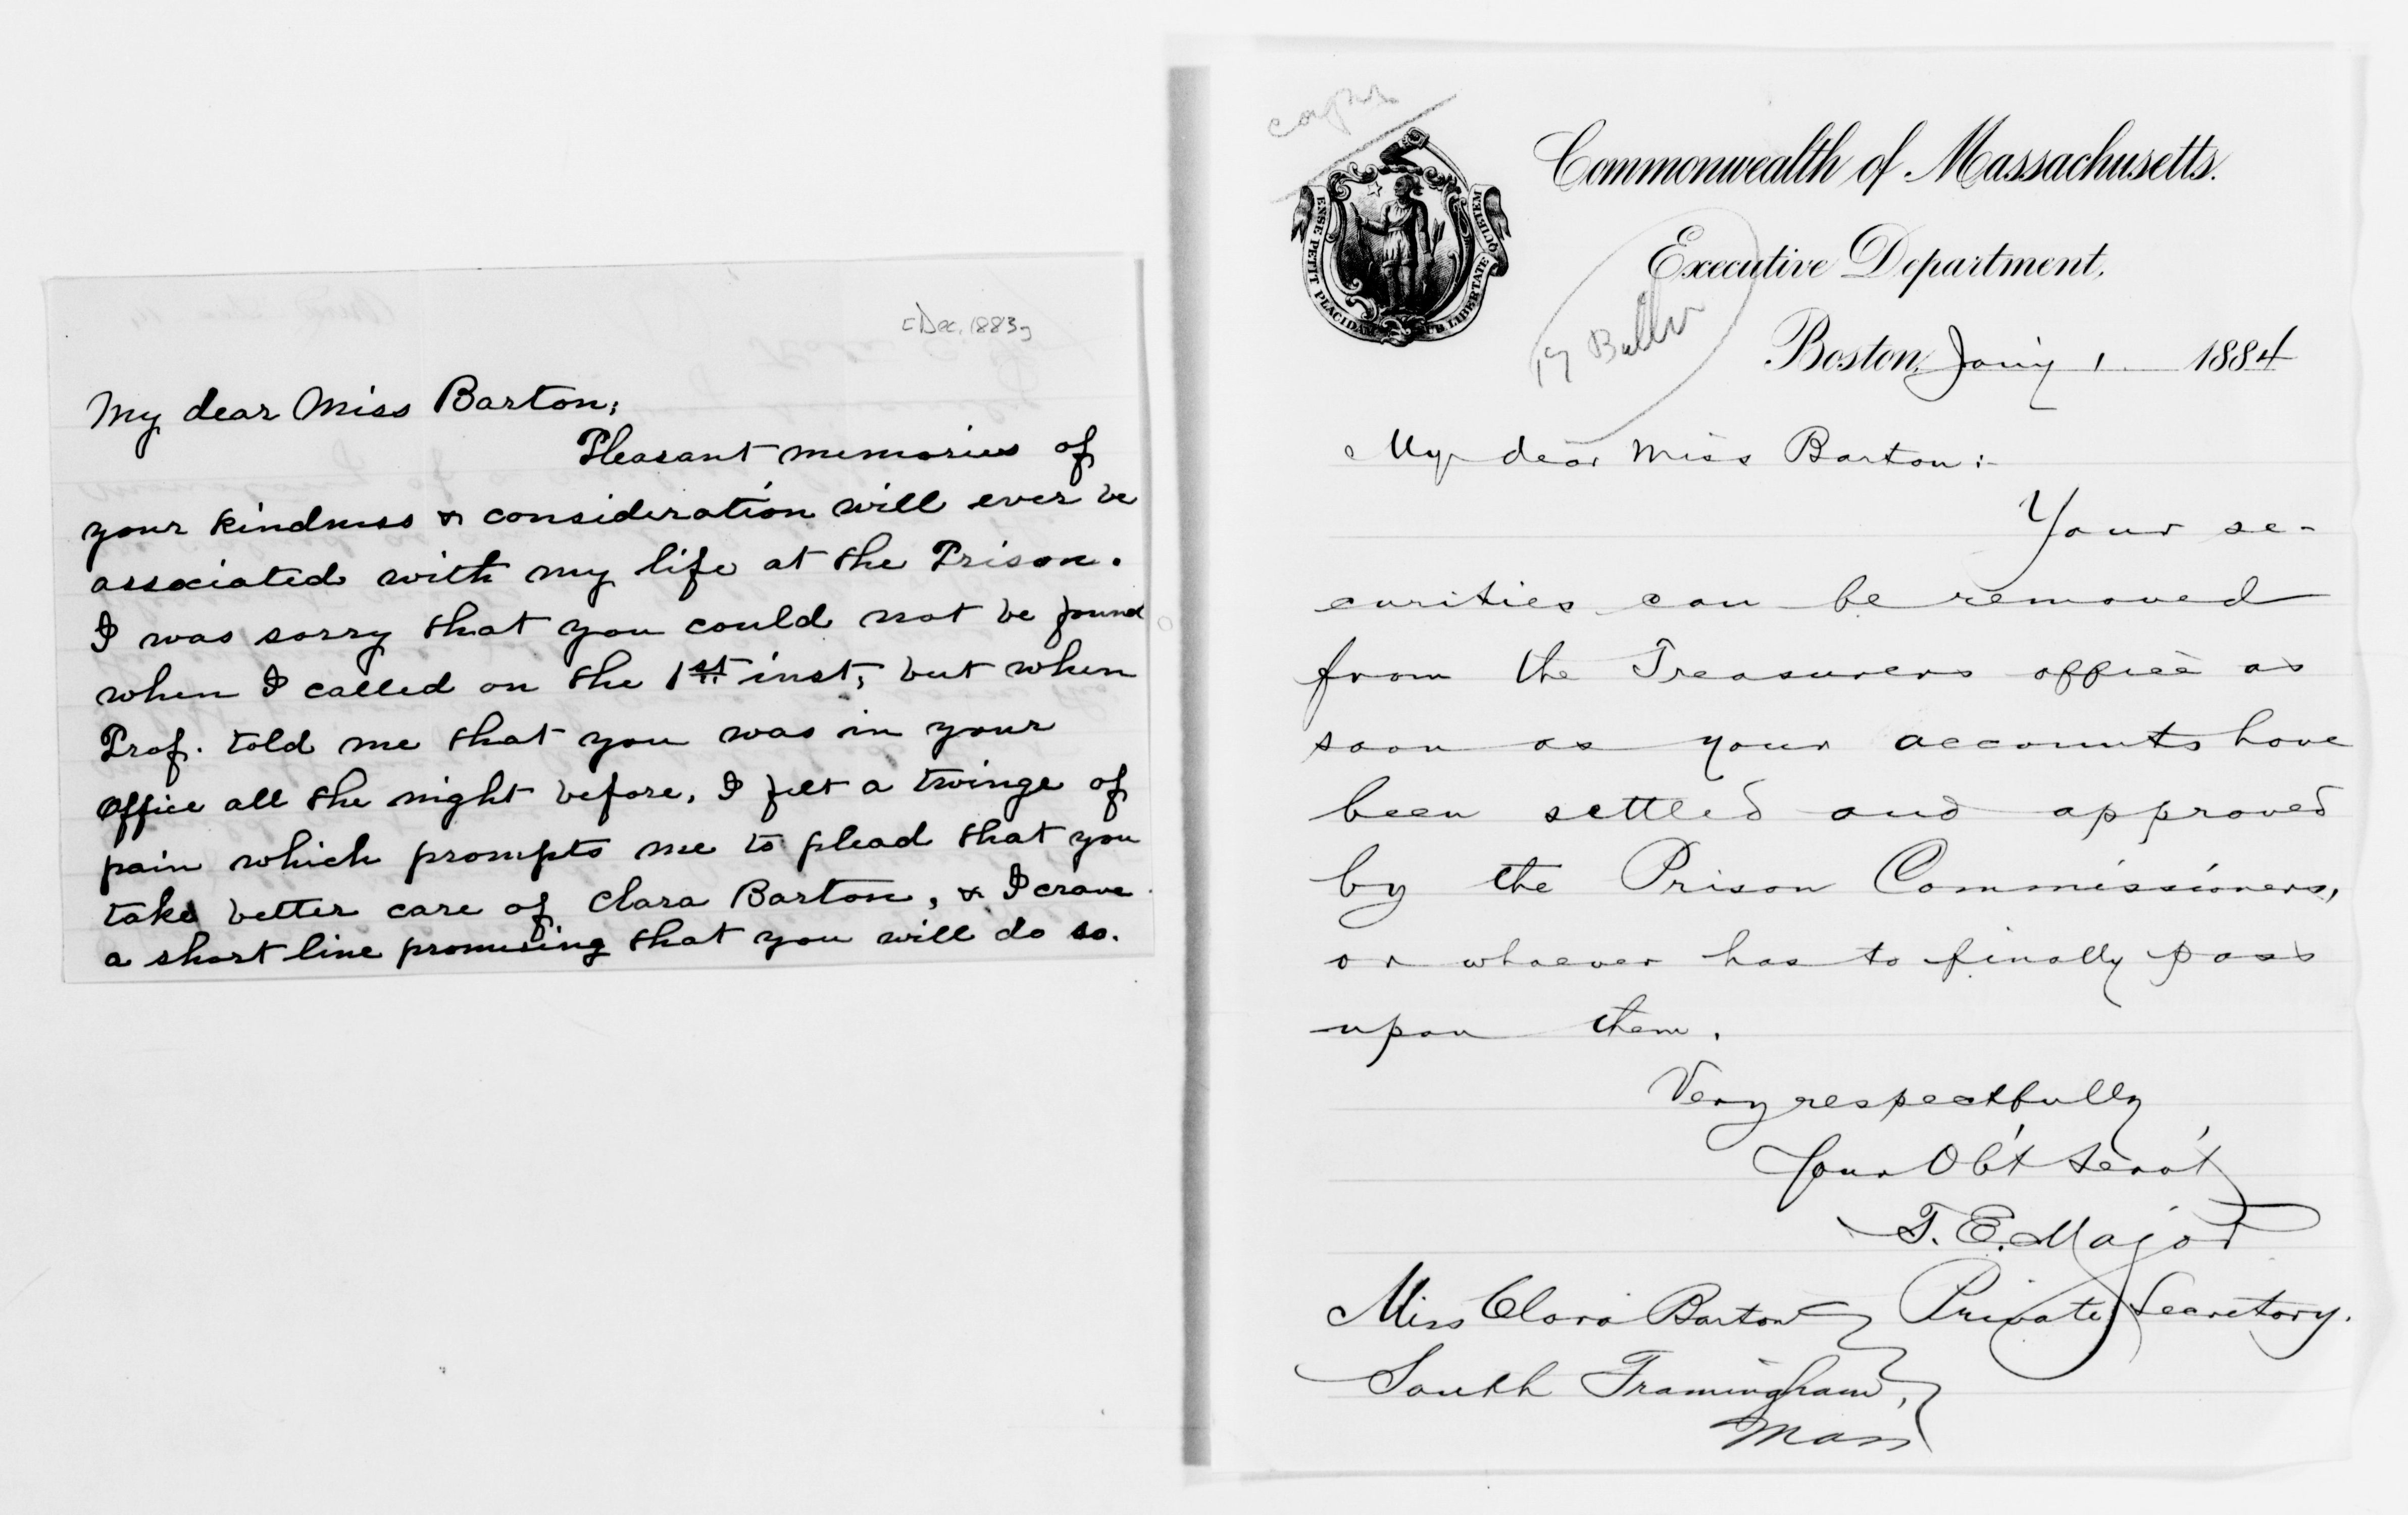 [Dec. 1883]
My dear Miss Barton;
Pleasant memories of
your kindness & consideration will ever be
associated with my life at the Prison.
I was sorry that you could not be found
when I called on the 1st inst, but when
Prof. told me that you was in your
Office all the night before, I felt a twinge of
pain which prompts me to plead that you
take better care of Clara Barton, & I crave
a short line promising that you will do so.
copy
ENSE PETIT PLACIDAM SUB LIBERTATE QUIETEM
Commonwealth of Massachusetts.
Executive Department,
Boston, Jan'y 1 1884
My dear Miss Barton:-
Your se-
curities can be removed
from the Treasurers office as
soon as your accounts have
been settled and approved
by the Prison Commissioners,
or whoever has to finally pass
upon them.
Very respectfully
Your Ob't Serv't
T. E. Major
Private Secretary.
Miss Clara Barton
South Framingham,
Mass